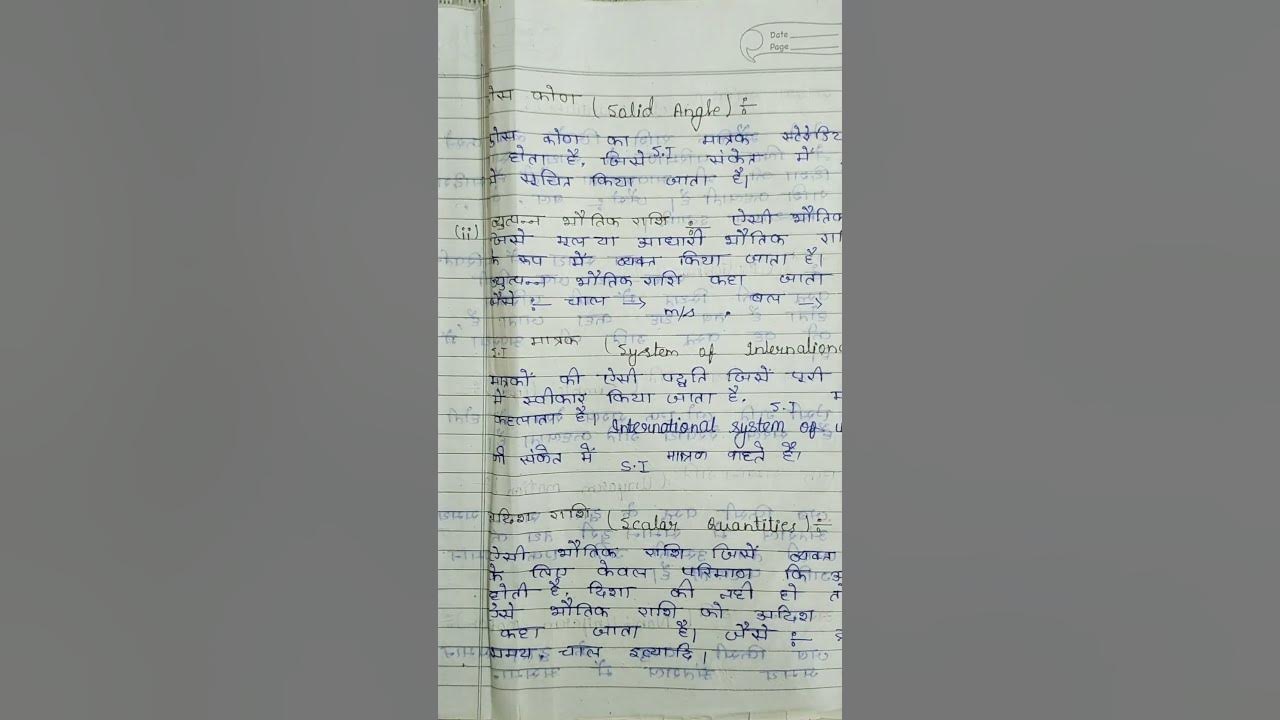 Date
Page
ठोस कोण (Solid Angle) ÷
ठोस कोण का S.I मात्रक
होता है, जिसे संकेत में
में सूचित किया जाता है।
(ii) व्युत्पन्न भौतिक राशि ÷ ऐसी भौतिक
जिसे मूल या आधारी भौतिक
के रूप में व्यक्त किया जाता है।
व्युत्पन्न भौतिक राशि कहा जाता
जैसे ÷ चाल → m/s, बल →
S.I मात्रक (System of Internation
मात्रकों की ऐसी पद्धति जिसें पूरी
में स्वीकार किया जाता है. S.I
कहलाता है। International system of
को संकेत में S.I मात्रक कहते है।
अदिश राशि (Scalar Quantities) ÷
ऐसी भौतिक राशि जिसें व्यक्त
के लिए केवल परिमाण कि
होती है, दिशा की नही हो
उसे भौतिक राशि को अदिश
कहा जाता है। जैसे ÷
समय, चाल इत्यादि।